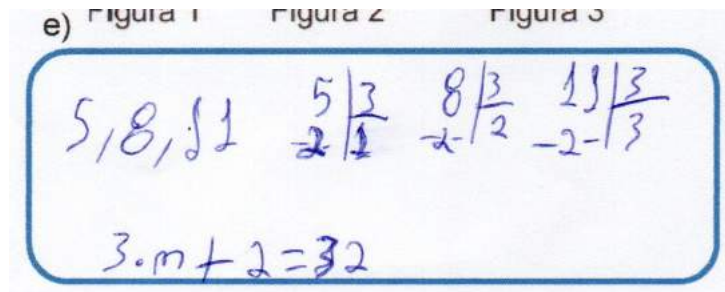 Figura 1 Figura 2 Figura 3
e)
5, 8, 11 5|3 8|3 11|3
-2-|1 -2-|2 -2-|3
3.n + 2 = 32